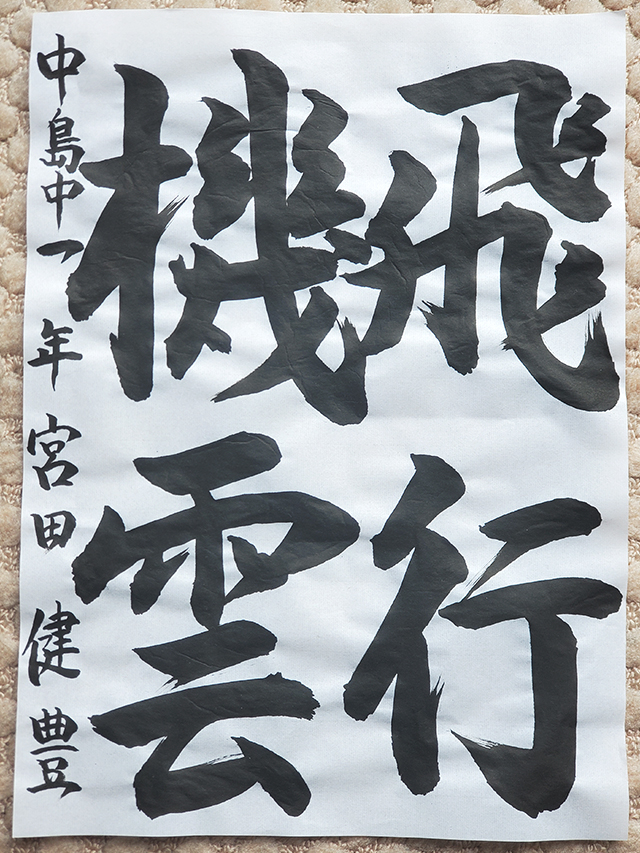 飛行
機雲
中島中一年宮田健豊